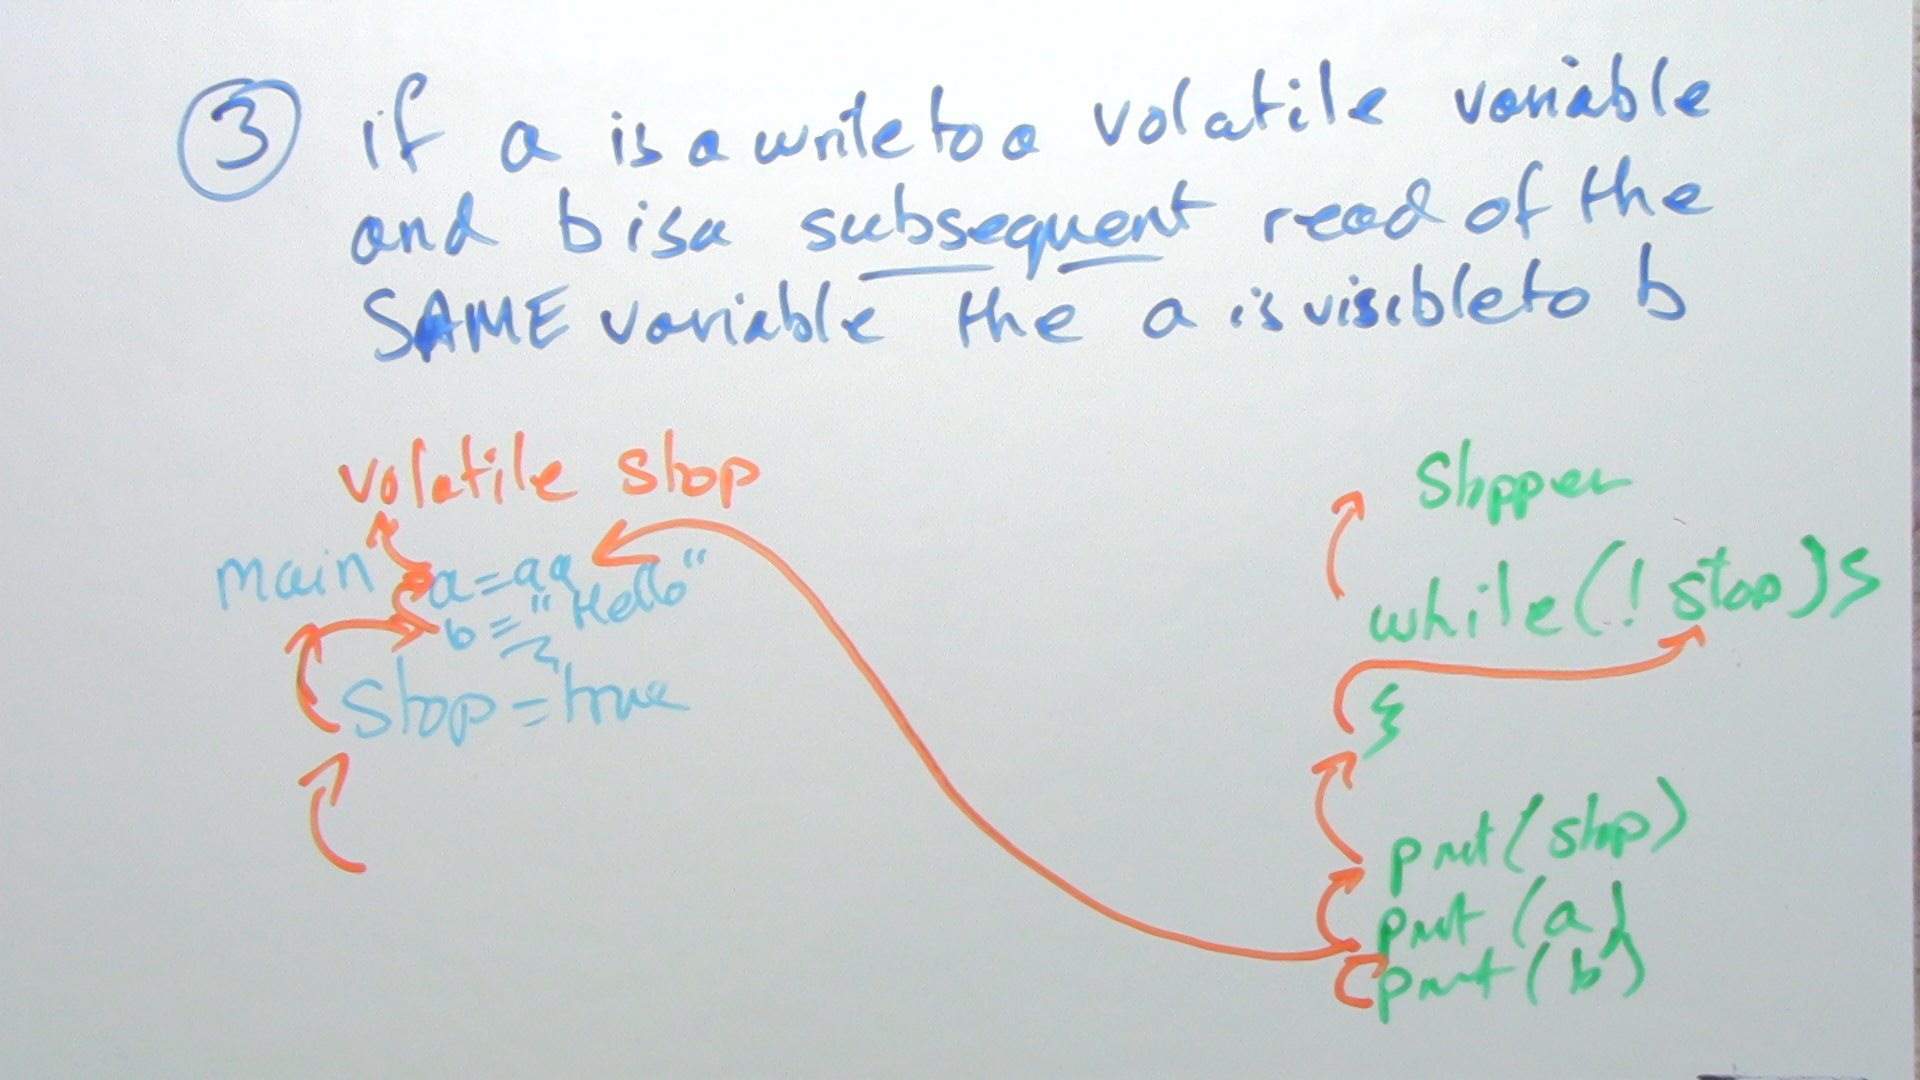 ③ if a is a write to a volatile variable
and b is a subsequent read of the
SAME variable the a is visible to b
volatile stop
main a=aa
b="Hello"
stop=true
Stopper
while(!stop){
}
print(stop)
print(a)
print(b)